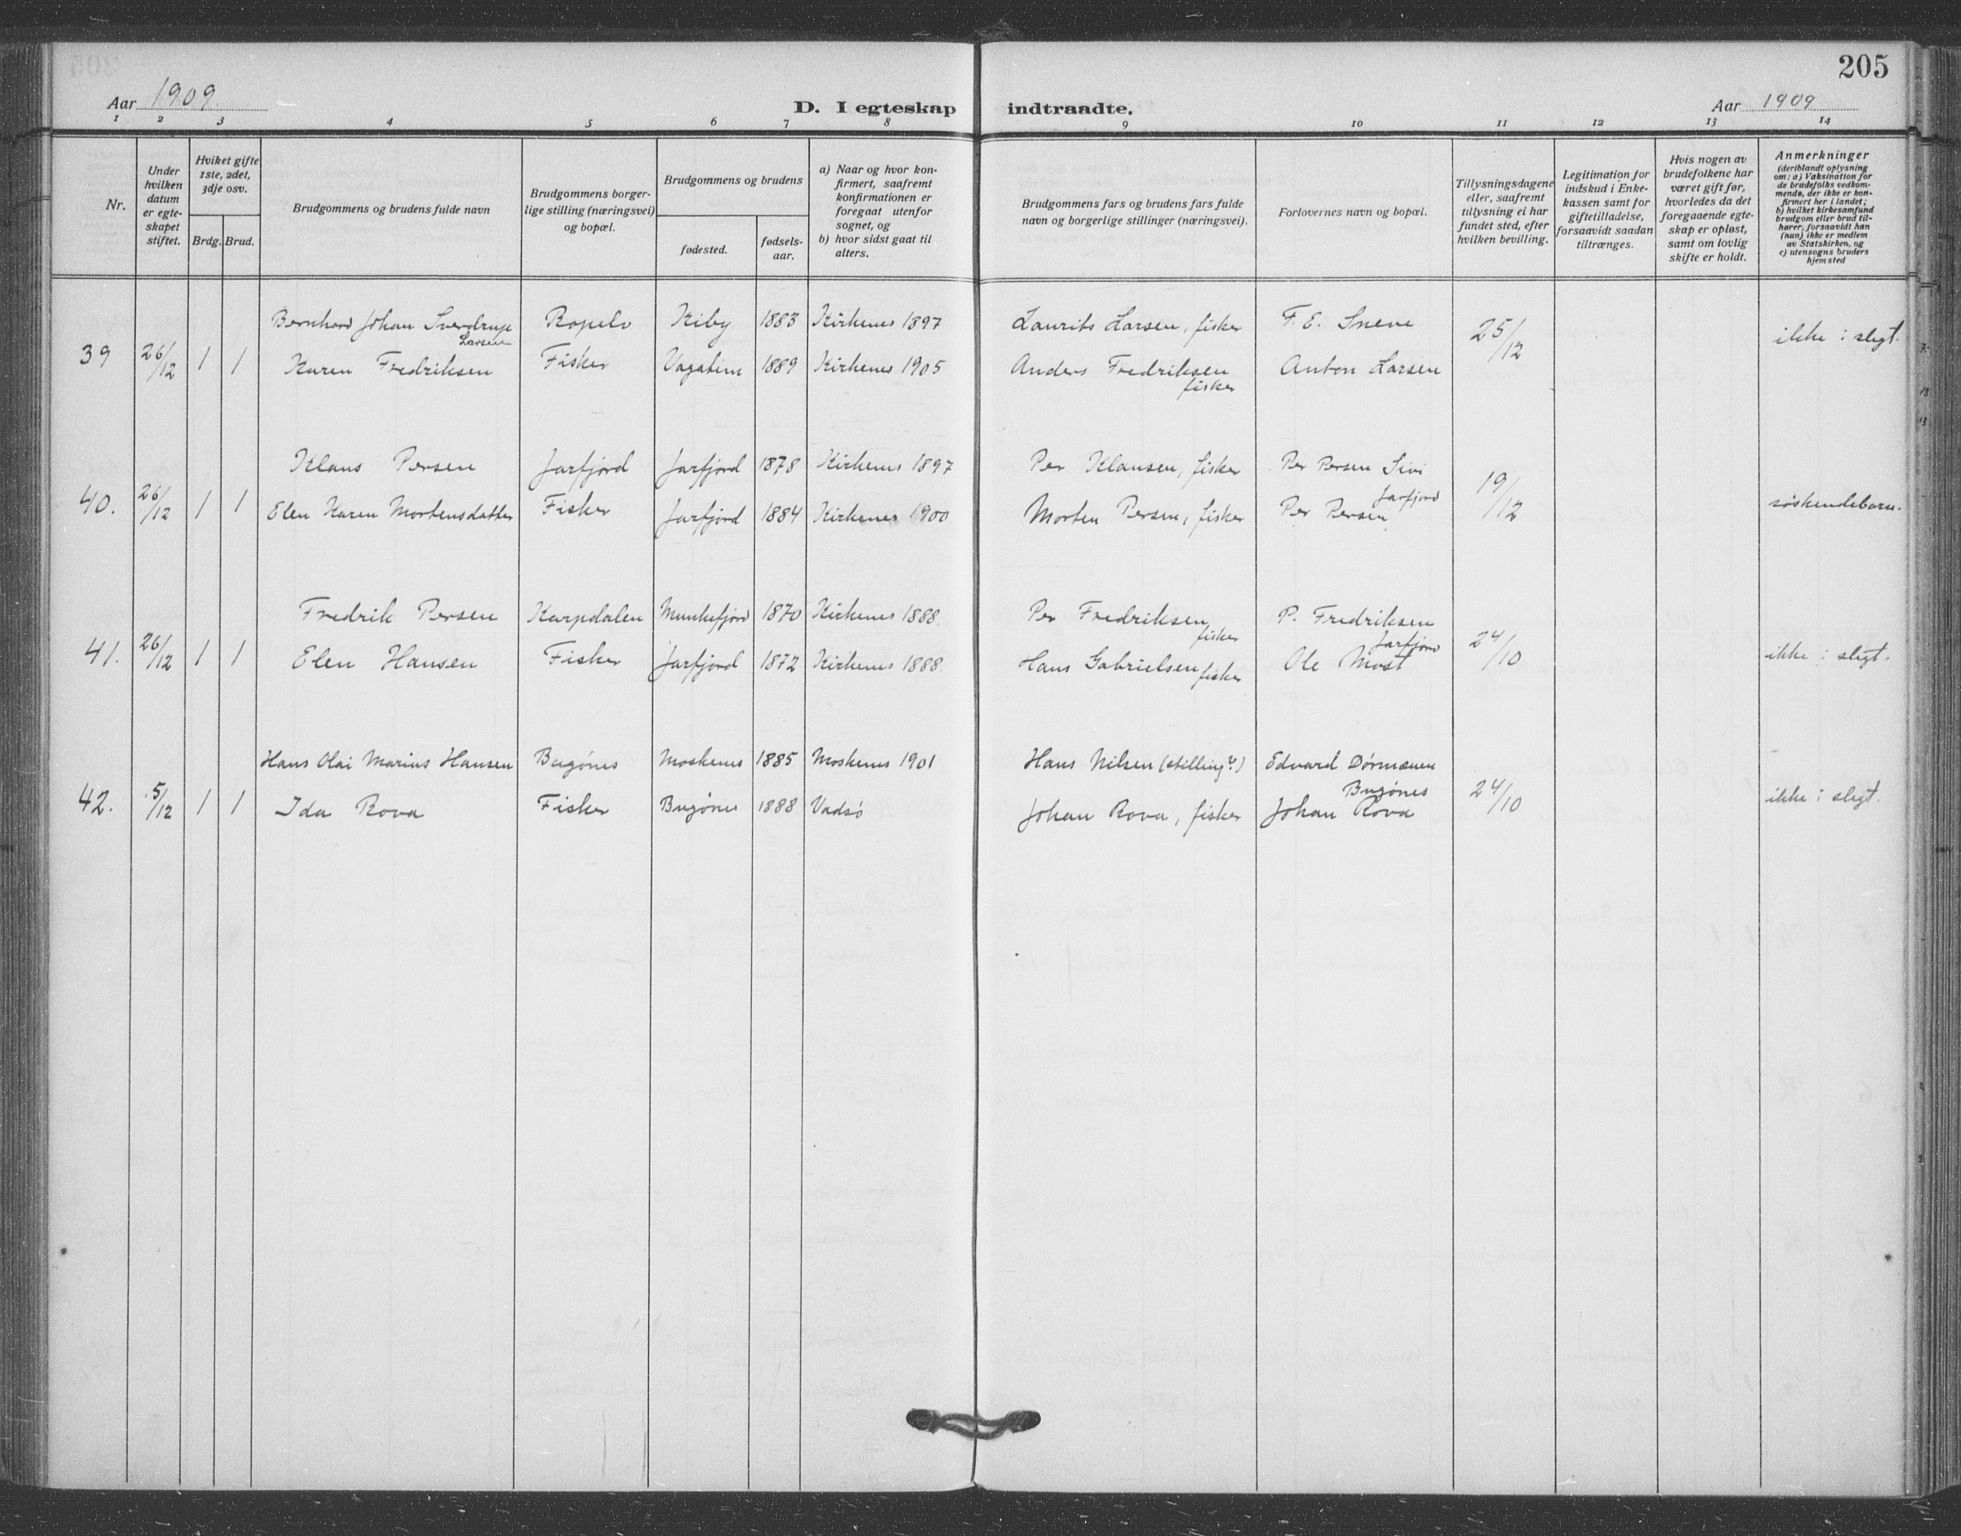 205
Aar 1909.
D. I egteskap indtraadte.
Aar 1909
1 2 3 4 5 6 7 8 9 10 11 12 13 14
Nr.
Under hvilken datum er egteskapet stiftet.
Hviket gifte 1ste, 2det, 3dje osv.
Brdg. Brud.
Brudgommens og brudens fulde navn
Brudgommens borgerlige stilling (næringsvei) og bopæl.
Brudgommens og brudens
fødested.
fødselsaar.
a) Naar og hvor konfirmert, saafremt konfirmationen er foregaat utenfor sognet, og
b) hvor sidst gaat til alters.
Brudgommens fars og brudens fars fulde navn og borgerlige stillinger (næringsvei).
Forlovernes navn og bopæl.
Tillysningsdagene eller, saafremt tillysning ei har fundet sted, efter hvilken bevilling.
Legitimation for indskud i Enkekassen samt for giftetilladelse, forsaavidt saadan tiltrænges.
Hvis nogen av brudefolkene har været gift før, hvorledes da det foregaaende egteskap er opløst, samt om lovlig skifte er holdt.
Anmerkninger
(deriblandt oplysning om: a) Vaksination for de brudefolks vedkommende, der ikke er konfirmert her i landet;
b) hvilket kirkesamfund brudgom eller brud tilhører, forsaavidt han (hun) ikke er medlem av Statskirken, og
c) utensogns bruders hjemsted
Bernhard Johan Sverdrup Larsen Ropelv Kiby 1883 Kirkenes 1897 Laurits Larsen, fisker F. E. Sneve
39 26/12 1 1 Karen Fredriksen Fisker Vagatim 1889 Kirkenes 1905 Anders Fredriksen fisker Anton Larsen 25/12 ikke i slegt.
Klaus Persen Jarfjord Jarfjord 1878 Kirkenes 1897 Per Klausen, fisker Per Persen Sivi
40. 26/12 1 1 Elen Karen Mortensdatter Fisker Jarfjord 1884 Kirkenes 1900 Morten Persen, fisker Per Persen Jarfjord 19/12 søskendebarn.
Fredrik Persen Karpdalen Munkefjord 1870 Kirkenes 1888. Per Fredriksen fisker P. Fredriksen Jarfjord
41. 26/12 1 1 Elen Hansen Fisker Jarfjord 1872 Kirkenes 1888 Hans Gabrielsen fisker Ole Most 24/10 ikke i slegt.
Hans Olai Marius Hansen Bugønes Moskenes 1885 Moskenes 1901 Hans Nilsen (stilling?) Edvard Dørmænen Bugønes
42. 5/12 1 1 Ida Rova Fisker Bugønes 1888 Vadsø Johan Rova, fisker Johan Rova 24/10 ikke i slegt.